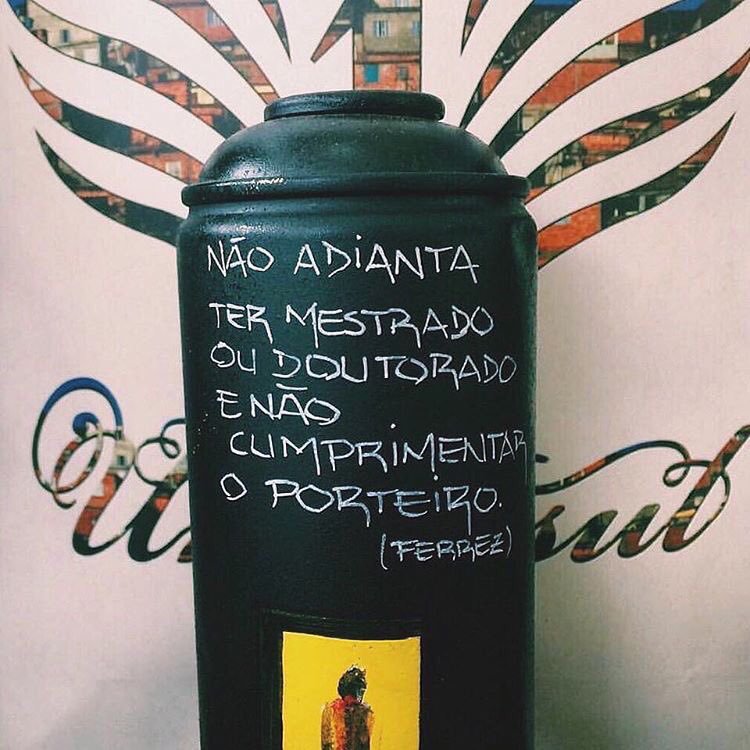 NÃO ADIANTA
TER MESTRADO
OU DOUTORADO
E NÃO
CUMPRIMENTAR
O PORTEIRO.
(FERREZ)
sul